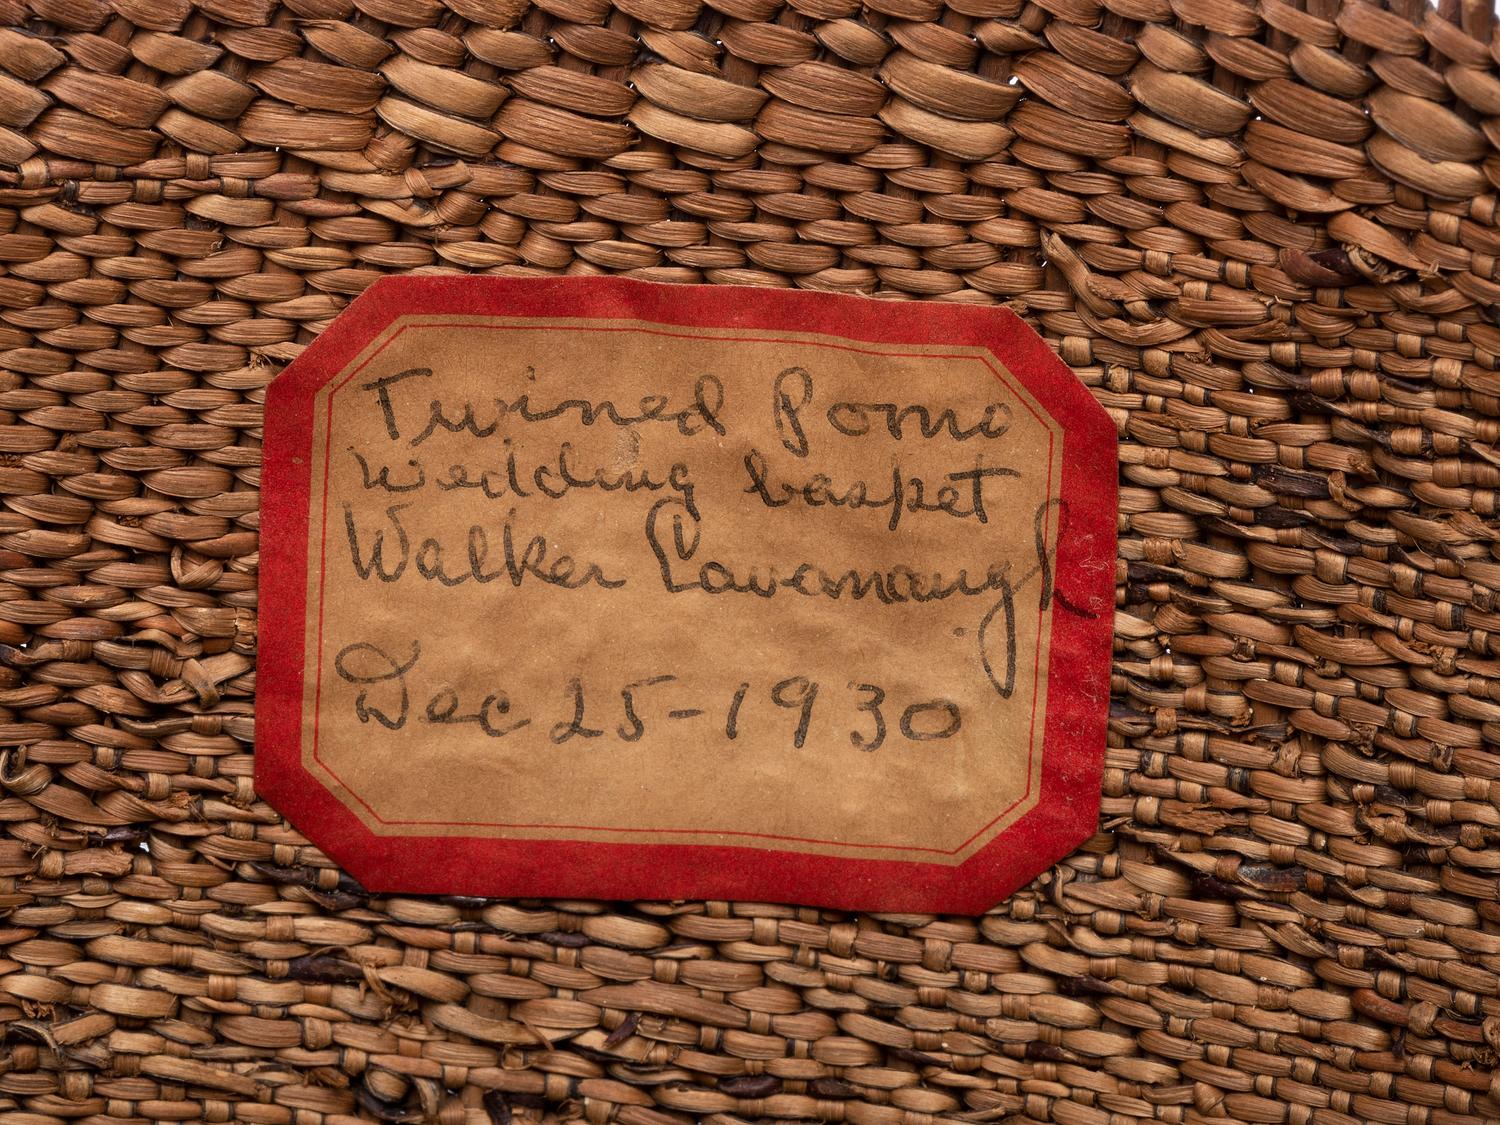 Twined Pomo
wedding basket
Walker Cavanaugh
Dec 25-1930